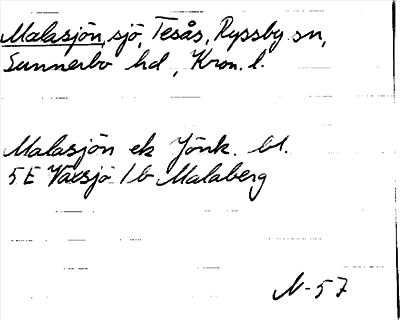 Malasjön, sjö, Tesås, Ryssby sn,
Sunnerbo hd, Kron. l.
Malasjön ek Jönk. bl.
5E Växsjö 1b Malaberg
N-57